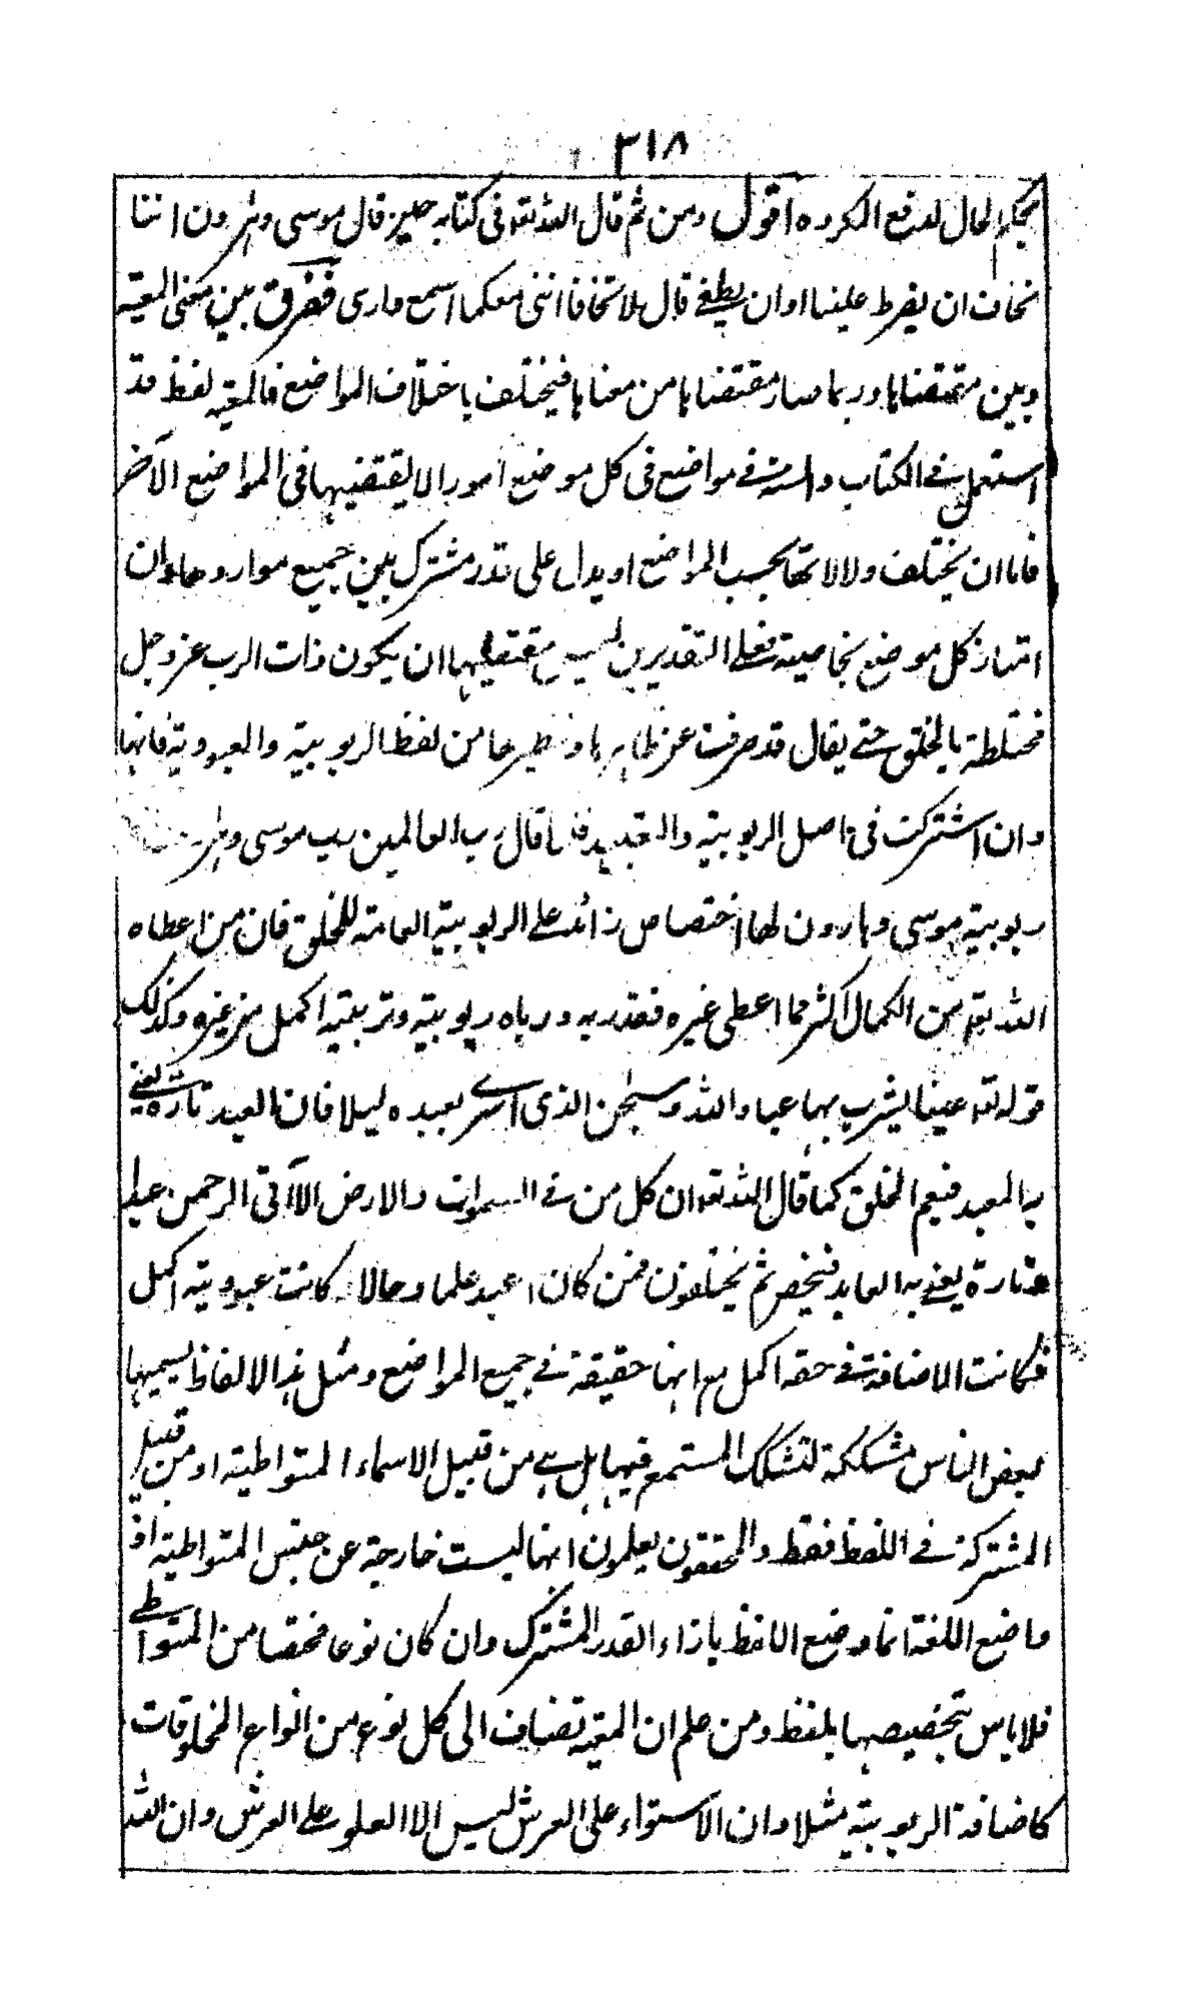 ٣١٨
بحكم الحال لدفع المكروه اقول ومن ثم قال الله تعه فى كتابه حين قال موسى وهرون اننا
نخاف ان يفرط علينا او ان يطغى قال لا تخافا اننى معكما اسمع وارى ففرق بين معنى المعية
وبين مقتضاها وربما صار مقتضاها من معناها فيختلف باختلاف المواضع فالمعية لفظ قد
استعمل فى الكتاب والسنة فى مواضع فى كل موضع امورا لا يقتضيها فى المواضع الآخر
فاما ان يختلف دلالاتها بحسب المواضع او يدل على قدر مشترك بين جميع مواردها وان
امتاز كل موضع بخاصية فعلى التقديرين ليس مقتضيها ان يكون ذات الرب عز وجل
مختلطة بالخلق حتى يقال قد صرفت عن ظاهرها ونظيرها من لفظ الربوبية والعبودية فانها
وان اشتركت فى اصل الربوبية والتعبيد فلما قال رب العالمين رب موسى وهرون
ربوبية موسى وهارون لها اختصاص زائد على الربوبية العامة للخلق فان من اعطاه
الله تعه من الكمال اكثر مما اعطى غيره فقد ربه ورباه ربوبية وتربية اكمل من غيره وكذلك
قوله تعه عينا يشرب بها عباد الله وسبحن الذى اسرى بعبده ليلا فان العبد تارة يعنى
به المعبد فيعم الخلق كما قال الله تعه ان كل من فى السموات والارض الا آتى الرحمن عبدا
وتارة يعنى به العابد فيخص ثم يختلفون فمن كان اعبد علما وحالا كانت عبودية اكمل
فكانت الاضافة فى حقه اكمل مع انها حقيقة فى جميع المواضع ومثل هذا الالفاظ يسميها
بعض الناس مشككة لتشكك المستمع فيها هل هى من قبيل الاسماء المتواطية او من قبيل
المشتركة فى اللفظ فقط والمحققون يعلمون انها ليست خارجة عن جنس المتواطية اذ
واضع اللغة انما وضع اللفظ بازاء القدر المشترك وان كان نوعا مختصا من المتواطى
فلا باس بتخصيصها بلفظ ومن علم ان المعية تضاف الى كل نوع من انواع المخلوقات
كاضافة الربوبية مثلا وان الاستواء على العرش ليس الا العلو على العرش وان الله